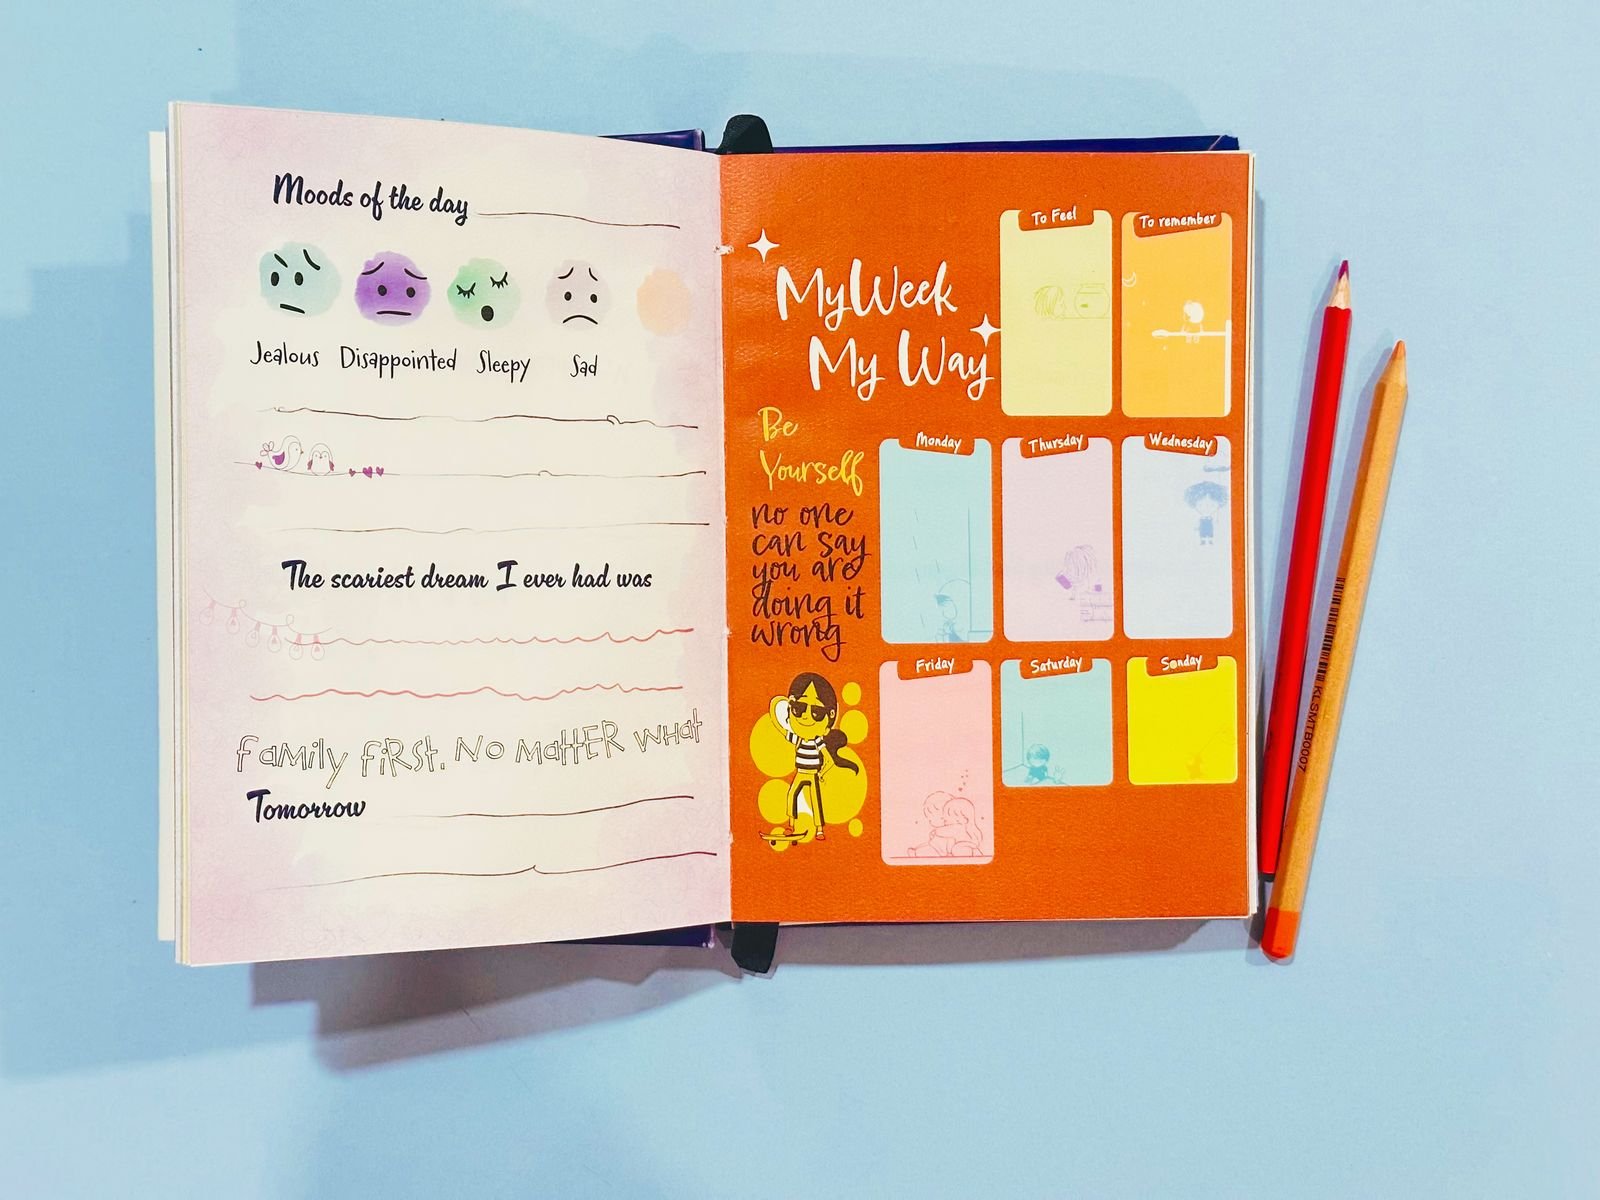 Moods of the day
Jealous Disappointed Sleepy Sad
The scariest dream I ever had was
Family First. No Matter What
Tomorrow
My Week
My Way
Be
Yourself
no one
can say
you are
doing it
wrong
To Feel
To remember
Monday
Thursday
Wednesday
Friday
Saturday
Sonday
KLSMTB0007